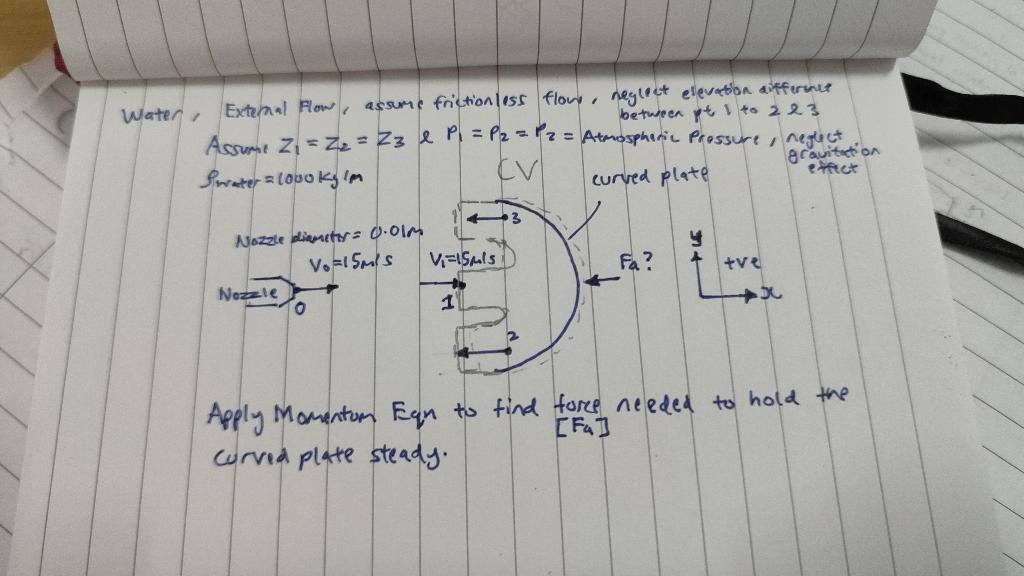 Water, External Flow, assume frictionless flow, neglect elevation difference
between pt 1 to 2 & 3
Assume Z1 = Z2 = Z3 & P1 = P2 = P3 = Atmospheric Pressure, neglect
gravitation
effect
ρwater = 1000 kg/m
CV
curved plate
3
Nozzle diameter = 0.01m
V0 = 15m/s
V1 = 15m/s
Fa?
y
+ve
x
Nozzle
0
1
2
Apply Momentum Eqn to find force needed to hold the
[Fa]
curved plate steady.